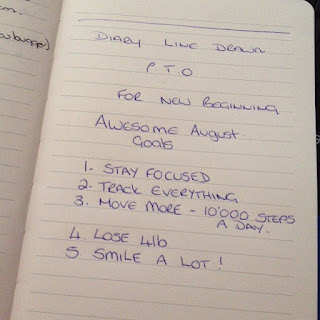 DIARY LINE DRAWN
P T O
FOR NEW BEGINNING
AWESOME AUGUST
GOALS
1. STAY FOCUSED
2. TRACK EVERYTHING
3. MOVE MORE - 10'000 STEPS
A DAY.
4. LOSE 4lb
5 SMILE A LOT!